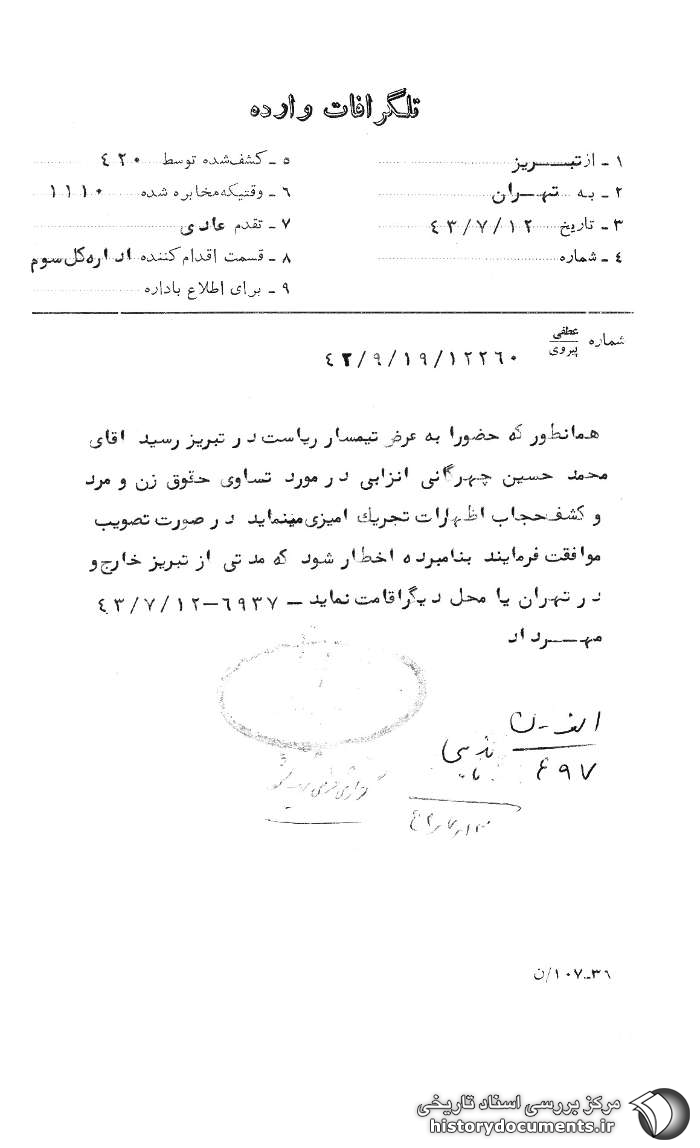 تلگرافات وارده
۱ ـ از تبـــریز
۲ ـ به تهــران
۳ ـ تاریخ ٤۳/۷/۱۲
٤ ـ شماره
٥ ـ کشف شده توسط ٤۲۰
٦ ـ وقتیکه مخابره شده ۱۱۱۰
۷ ـ تقدم عادی
۸ ـ قسمت اقدام کننده اداره کل سوم
۹ ـ برای اطلاع باداره
شماره عطفی
پیروی
٤۲/۹/۱۹/۱۲۲٦۰
همانطور که حضورا به عرض تیمسار ریاست در تبریز رسید اقای
محمد حسین چهرگانی انزابی در مورد تساوی حقوق زن و مرد
و کشف حجاب اظهارات تحریك امیزی مینماید در صورت تصویب
موافقت فرمایند بنامبرده اخطار شود که مدتی از تبریز خارج و
در تهران یا محل دیگر اقامت نماید ـ ٦۹۳۷ـ٤۳/۷/۱۲
مهـــرداد
الف ـ ن
٦۹۷
۳٦ـ۱۰۷/ن
مرکز بررسی اسناد تاریخی
historydocuments.ir